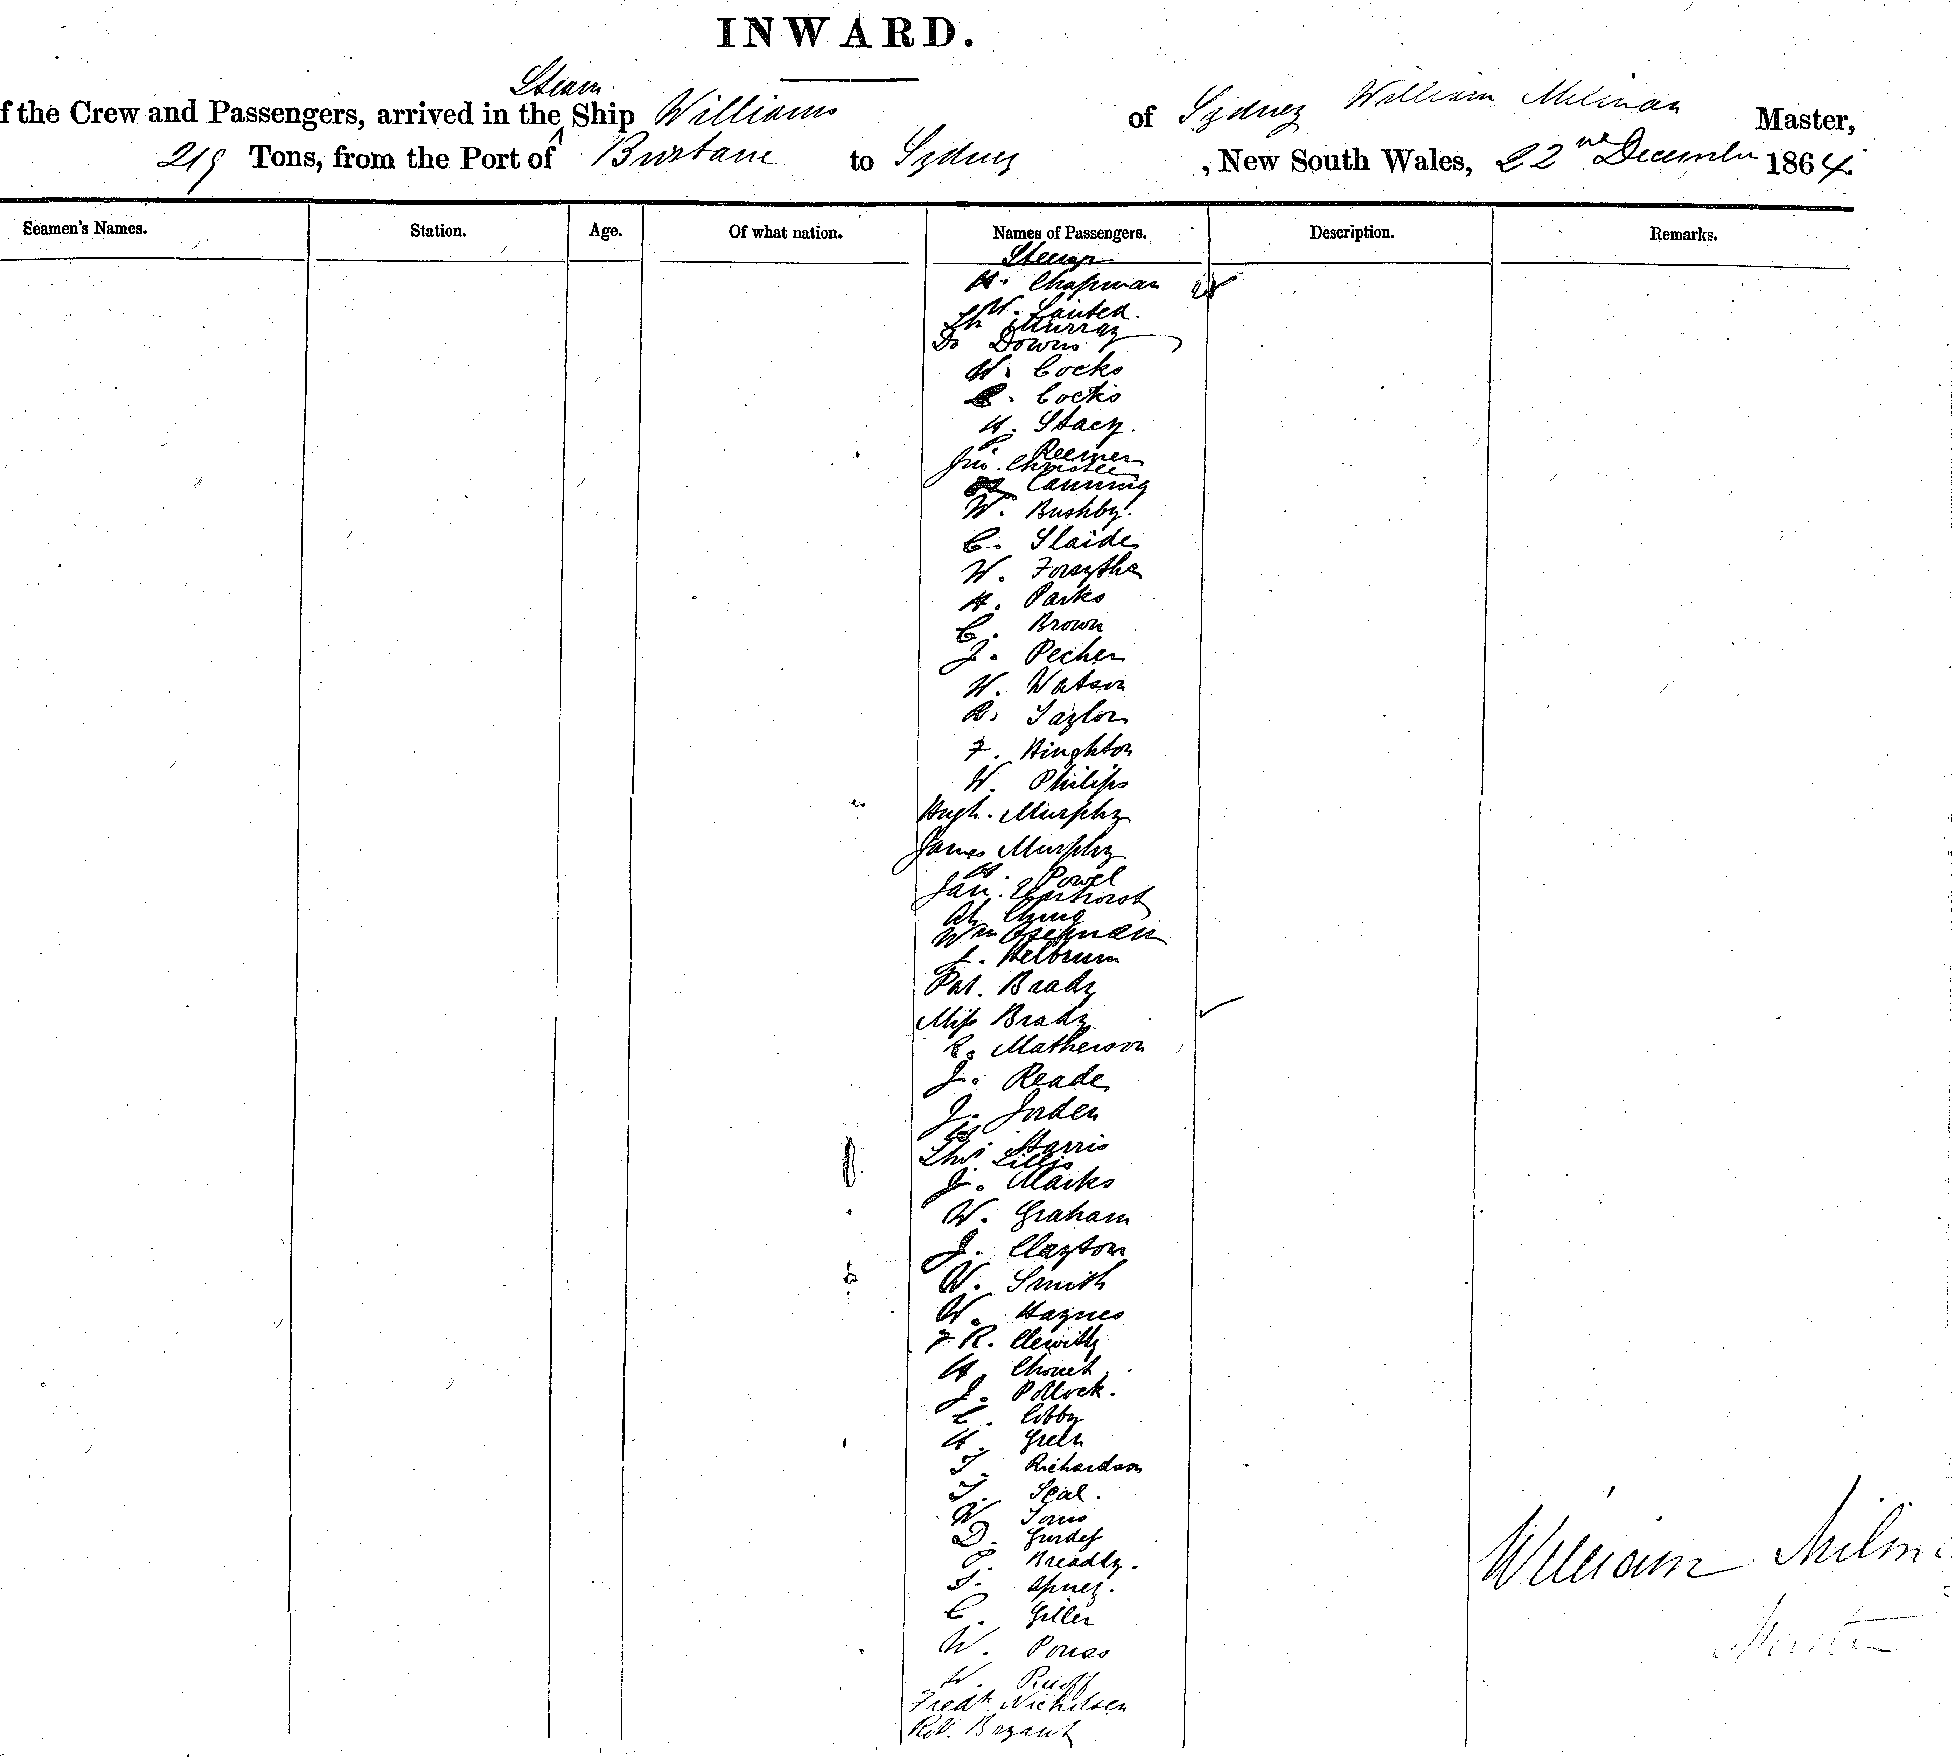 INWARD.
Steam
f the Crew and Passengers, arrived in the Ship Williams of Sydney William Milman Master,
219 Tons, from the Port of Brisbane to Sydney , New South Wales, 22nd December 1864
Seamen's Names. Station. Age. Of what nation. Names of Passengers. Description. Remarks.
H. Chapman
W.
Murray
Do Downs
W. Cocks
Cocks
H. Stacy.
Jno. Christee
Canning
W. Bushby.
C. Slaide
W. Forsythe
H. Parks
C. Brown
J. Pecher
W. Watson
R. Taylor
F. Hinghton
W. Philips
Hugh. Murphy
James Murphy
H. Powel
Ah Ching
Wm
L. Helbrum
Pat. Brady
Miss Brady
Matherson
J. Reade
J. Jorden
Harris
Thos. Lillis
J. Marks
W. Graham
J. Clayton
W. Smith
W. Haynes
F R.
H.
J. Pollock.
C. Cobby
H. Green
T. Richardson
T. Seal.
W. Toms
D.
P. Breadly.
T.
C. Giller
W.
W.
Fredk Nicholson
Rob. Bryant
William Milm
Master